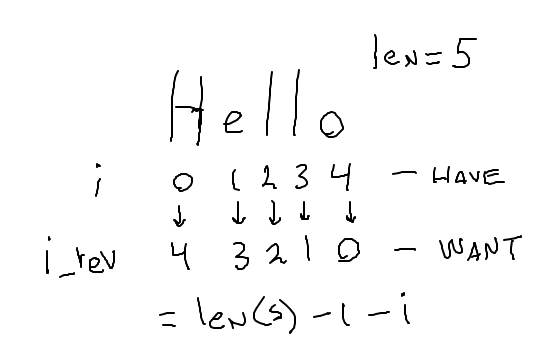 len=5
Hello
i 0 1 2 3 4 - HAVE
↓ ↓ ↓ ↓ ↓
i_rev 4 3 2 1 0 - WANT
= len(s) - 1 - i